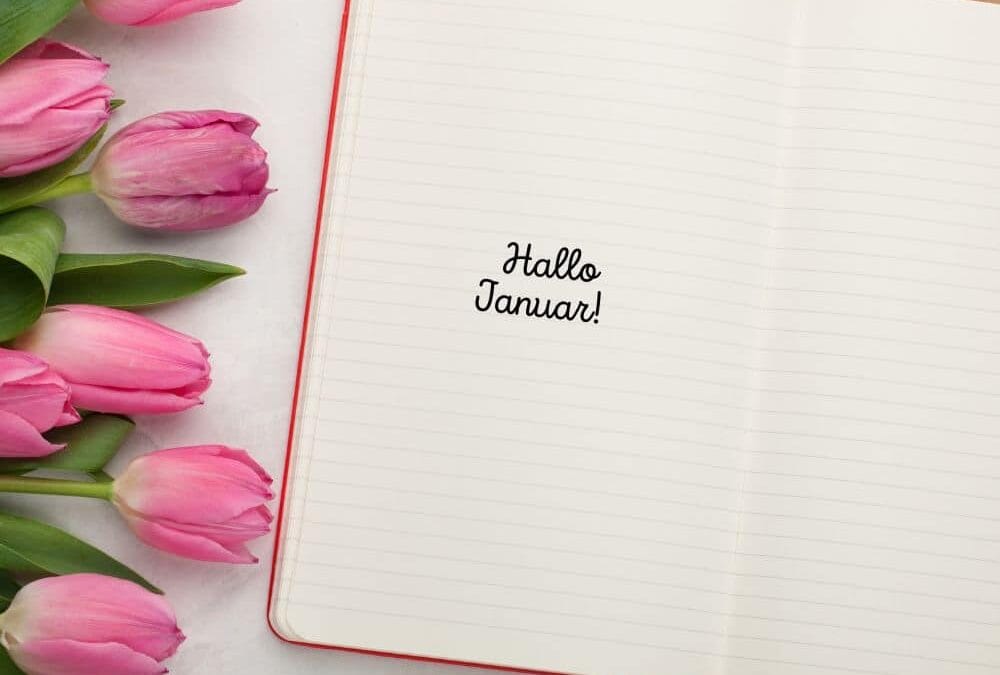 Hallo
Januar!